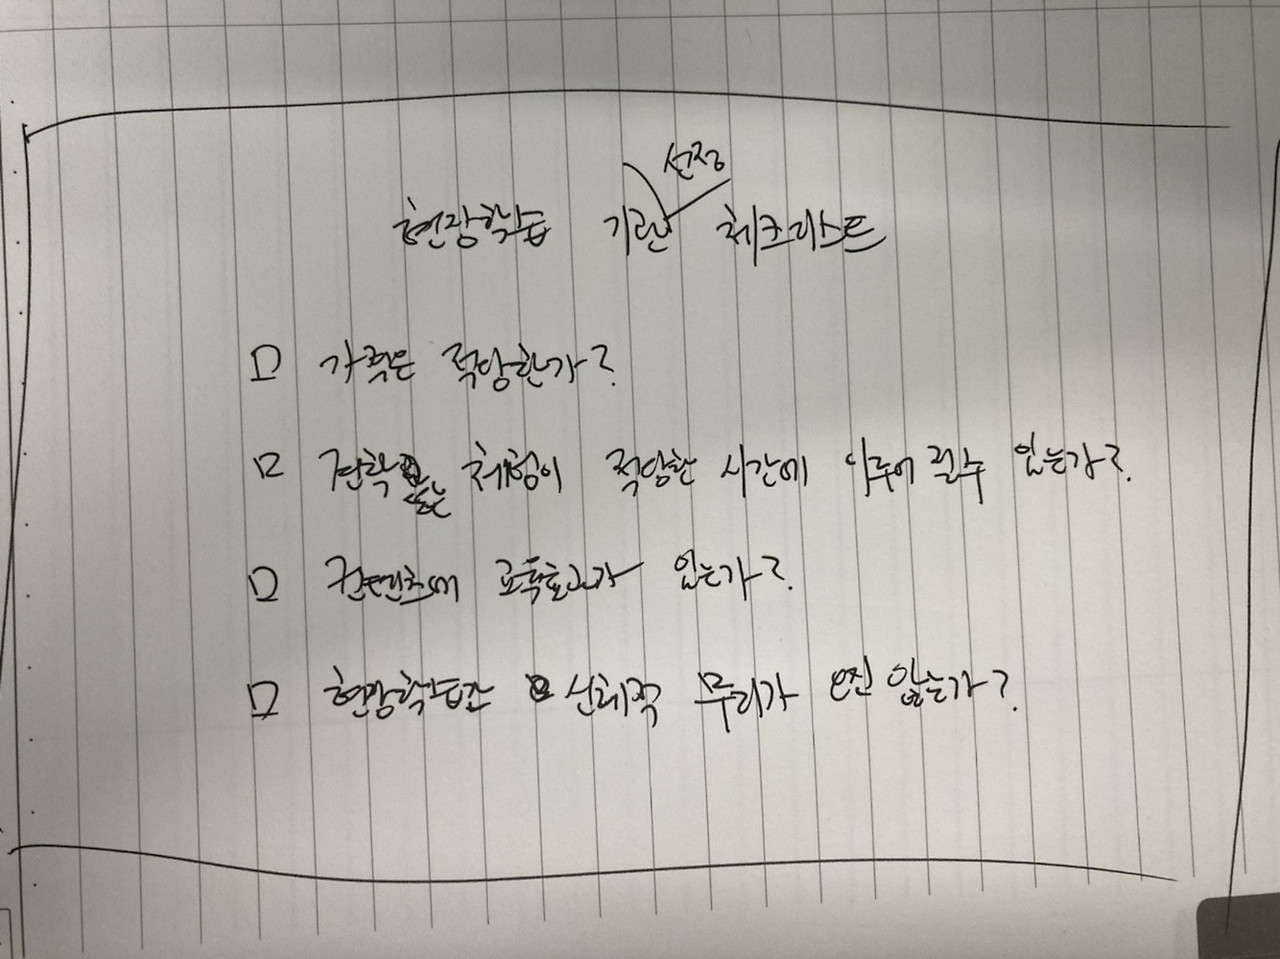 현장학습 기관 선정 체크리스트
□ 가격은 적당한가?
□ 견학 또는 체험이 적당한 시간에 이루어 질수 있는가?
□ 컨텐츠에 교육효과가 있는가?
□ 현장학습관 신체적 무리가 없는가?